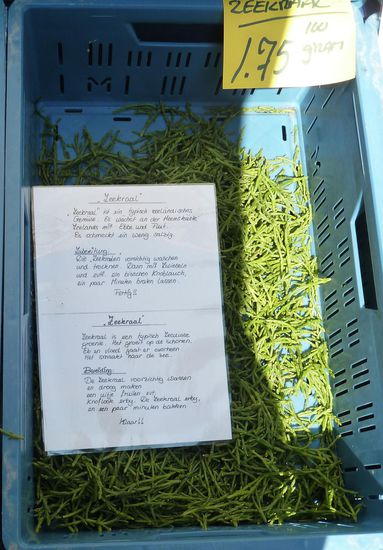 ZEEKRAAL
100
1.75 gram
"Zeekraal"
"Zeekraal" ist ein typisch zeeländisches
Gemüse. Es wächst an der Meeresküste
Zeelands mit Ebbe und Flut.
Es schmeckt ein wenig salzig.
Zubereitung:
Die Zeekralen vorsichtig waschen
und trocknen. Dann mit Zwiebeln
und evtl. ein bisschen Knoblauch,
ein paar Minuten braten lassen.
Fertig!!
"Zeekraal"
Zeekraal is een typisch Zeeuwse
groente. Het groeit op de schorren.
Eb en vloed gaat er overheen
Het smaakt naar de zee.
Bereiding:
De Zeekraal voorzichtig wassen
en droog maken
een uitje fruiten evt.
knoflook erbij. De Zeekraal erbij,
en een paar minuten bakken
Klaar!!